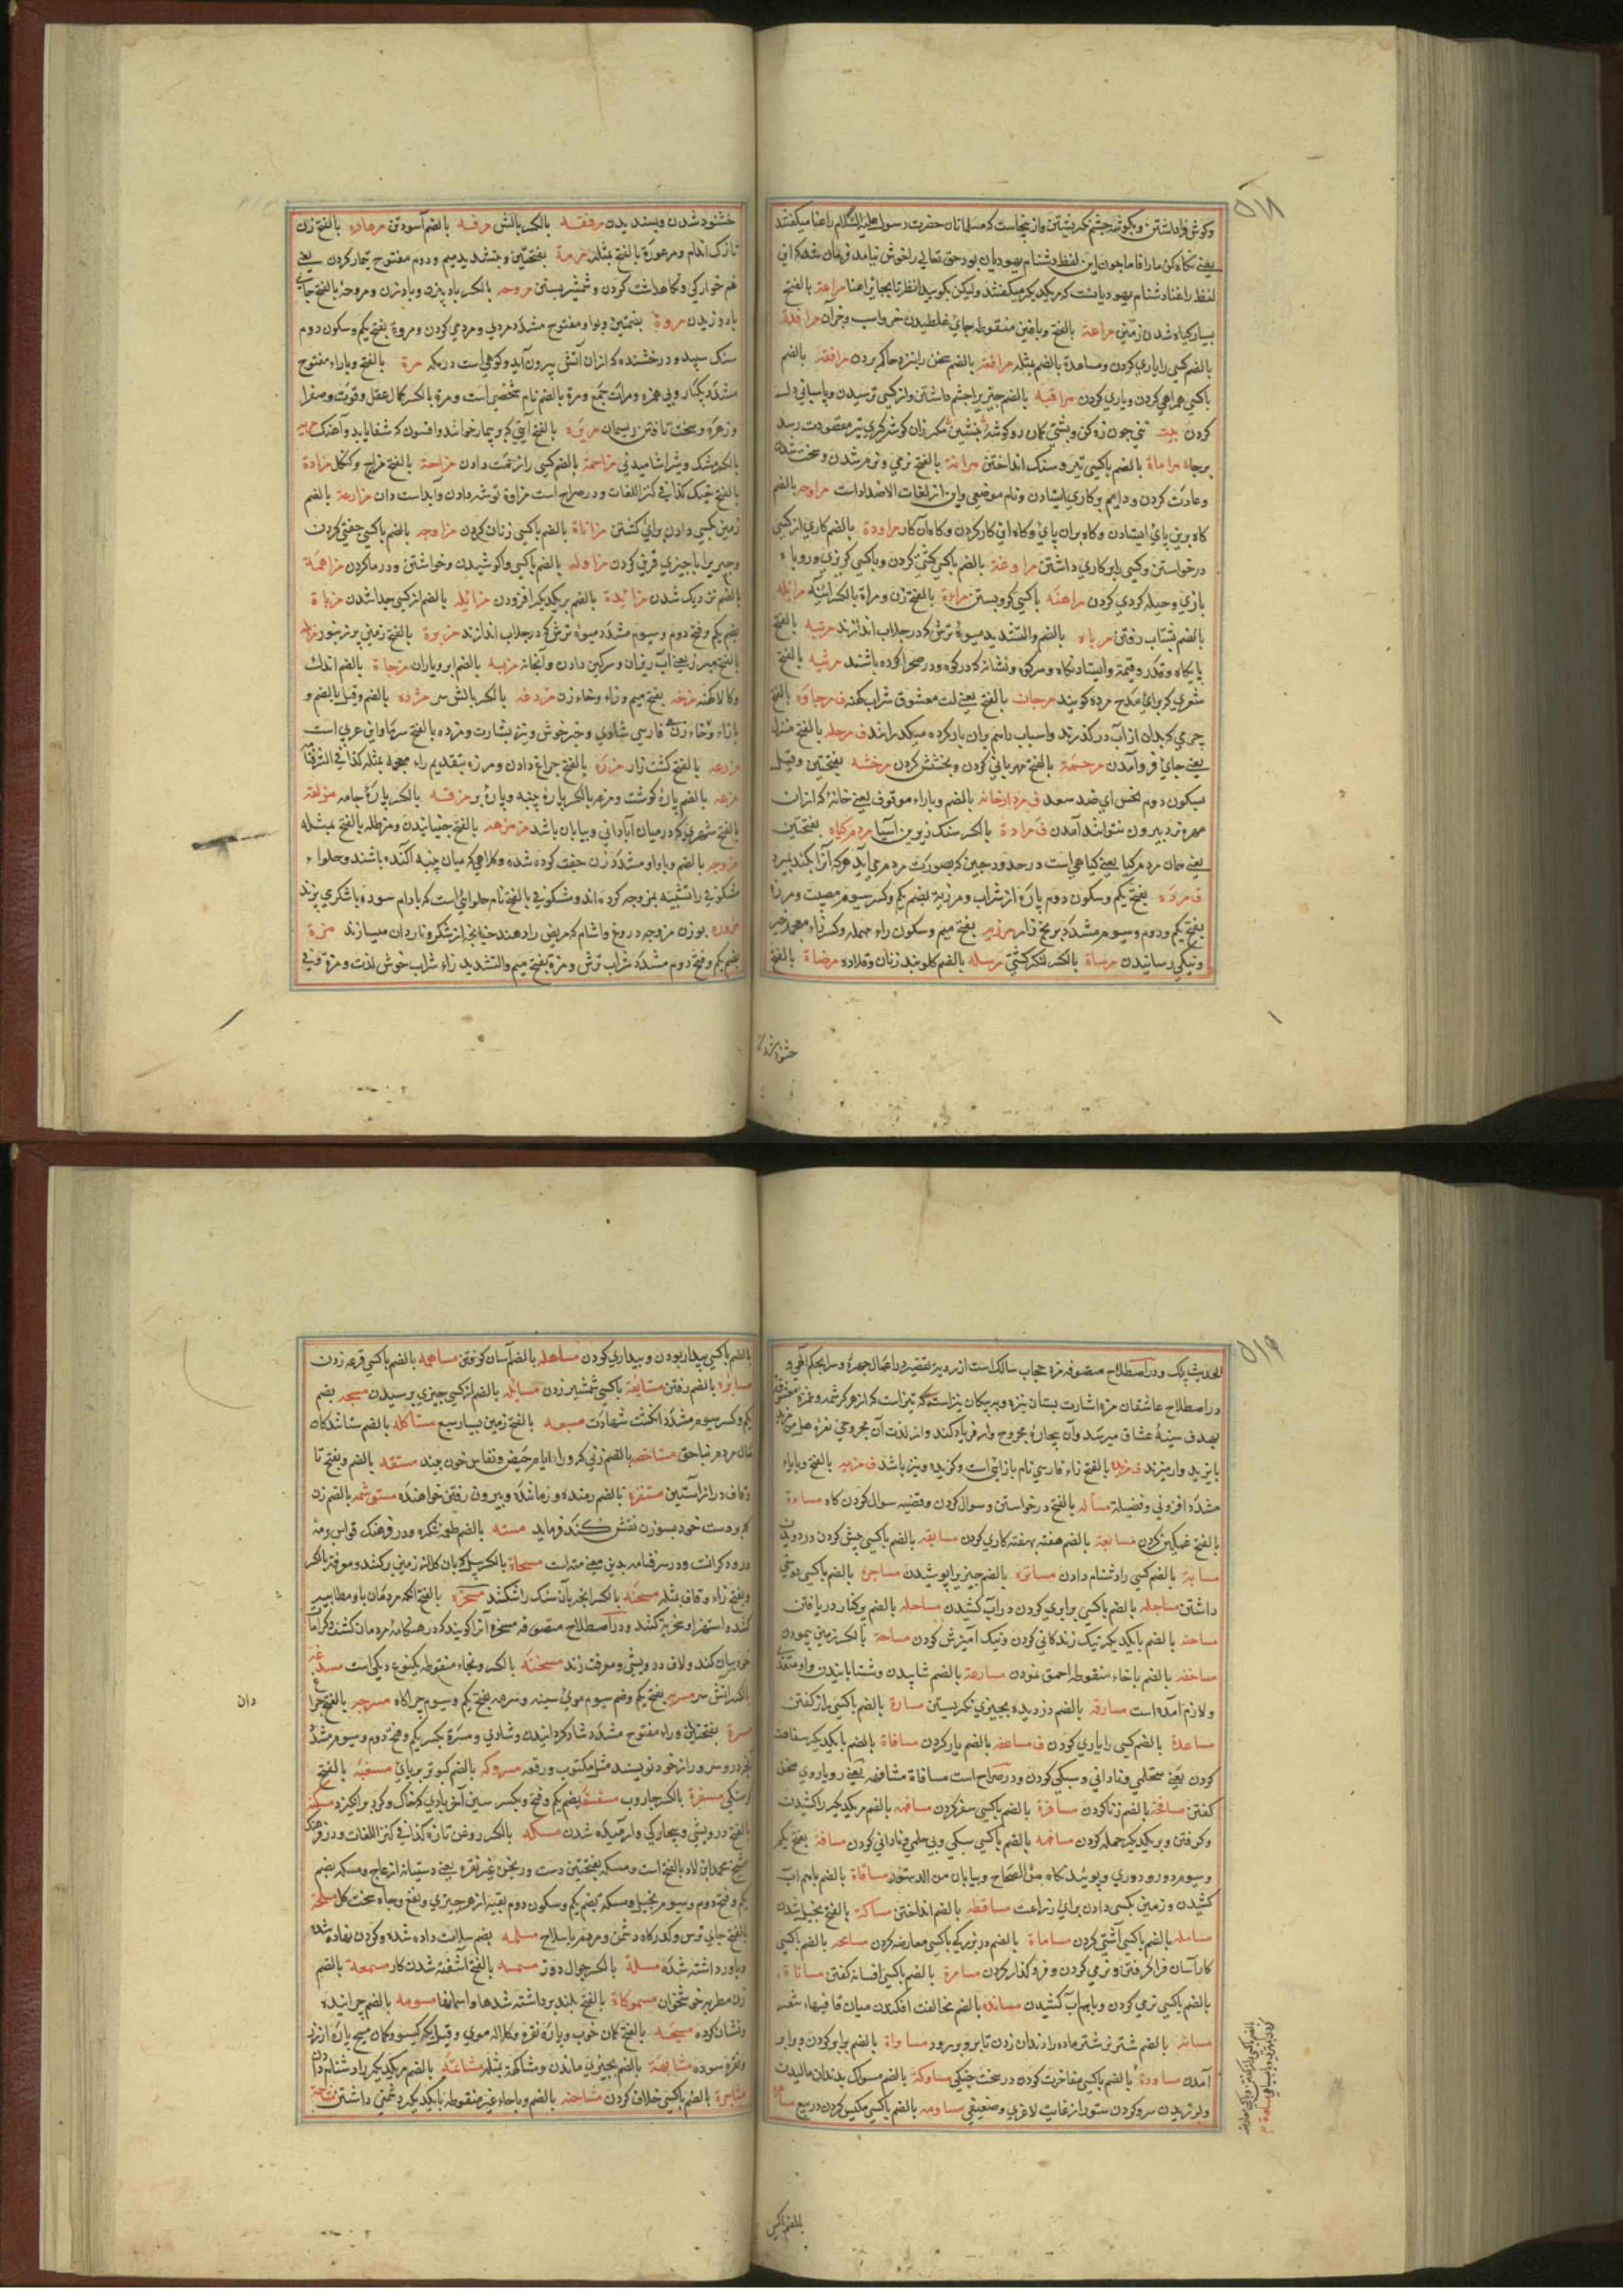 ۵۱۸
وکوش فرا داشتن و بکوشهٔ چشم نکریستن و از ینجاست که مسلمانان حضرت رسول علیه السلام راعنا میکفتند
یعنی نکاه کن ما را فاما چون این لفظ دشنام یهودیان بود حق تعالی را خوش نیامد فرمان شد که این
لفظ راعنا دشنام یهودیانست که بریکدیکر میکفتند ولیکن بکویید انظرنا بجای راعنا مراعة بالفتح
بسیار کیاه شدن زمین مراغة بالفتح و باغین منقوطه جای غلطیدن خر و اسب و جز آن مرافدة
بالضم کسی را یاری کردن و مساعدة بالضم مثله مرافعة بالضم سخن را نزد حاکم بردن مرافقة بالضم
باکسی همراهی کردن و یاری کردن مراقبه بالضم چیزیرا چشم داشتن و از کسی ترسیدن و پاسبانی دل
کردن بیت تنی چون زه کن و پشتی کمان رو کوشهٔ بنشین مکر زان کوشه کیری تیر مقصودت رسد
برجاه مراماة بالضم باکسی تیر و سنک انداختن مرانة بالفتح نرمی و نرم شدن و سخت شدن
و عادت کردن و دایم برکاری ایستادن و نام موضعی و این از لغات الاضداد است مراوحه بالضم
کاه برین پای ایستادن و کاه بران پای و کاه این کار کردن و کاه آن کار مراودة بالضم کاری از کسی
درخواستن و کسی را بر کاری داشتن مراوغة بالضم باکسی کشتی کردن و باکسی کریزی و روباه
بازی و حیله کردی کردن مراهنه باکسی کرو بستن مراءة بالفتح زن و مراة بالکسر آئینه مرایله
بالضم بشتاب رفتن مرباه بالضم والتشدید میوهٔ ترش که در جلاب اندازند مرتبه بالفتح
پایکاه و قدر و قیمة و ایستاد نکاه و سرکوه و نشانه که در کوه و در صحرا کرده باشند مرثیه بالفتح
شعری که برای مدح مرده کویند مرجانه بالفتح یعنی لب معشوق شراب کهنه ف مرجاوه بالفتح
چرمی که بدان از آب در کذرند و اسباب باسم بران بار کرده میکذرانند ف مرحله بالفتح منزل
یعنی جای فرو آمدن مرحمة بالفتح مهربانی کردن و بخشش کردن مرخشه بفتحتین و قیل
بسکون دوم نحس ای ضد سعد ف مردارخانه بالضم و باراء موقوف یعنی خانهٔ که ازان
مهره نرد بیرون نتوانند آمدن ف مرادة بالکسر سنک زیرین آسیا مردم کیاه بفتحتین
یعنی همان مردم کیا یعنی کیاهی است در حدود چین که بصورت مردم می آید هر که آنرا بکند بمیرد
ف مرده بفتح یکم و سکون دوم پارهٔ از شراب و مرزیة بضم یکم و کسر سیوم مصیبت و مرزه
بفتح یکم و دوم و سیوم مشدّد برنج زار مرزبه بفتح میم و سکون راء مهمله و کسر زاء معجمه خیر
و نیکی رسانیدن مرساة بالکسر لنکر کشتی مرسله بالضم کلوبند زنان و قلاده مرضاة بالفتح
خشنود شدن
خشنود شدن و پسندیدن مرفقه بالکسر بالش مرفه بالضم آسودتن مرهاده بالفتح زن
نازک اندام و مرعورة بالفتح مثله مرمة بفتحتین و بتشدید میم و دوم مفتوح تیمار کردن یعنی
غم خوارکی و نکاهداشت کردن و شمشیر بستن مروحه بالکسر بادبیزن و بادزن و مروحة بالفتح جای
باد وزیدن مروة بضمتین و واو مفتوح مشدّد مردی و مردمی کردن و مروة بفتح یکم و سکون دوم
سنک سپید و درخشنده که ازان آتش بیرون آید و کوهی است در مکه مرة بالفتح و باراء مفتوح
مشدّد یکبار و بی همزه و مرات جمع و مرة بالضم نام شخصی است و مرة بالکسر کمال عقل و قوّت و صفرا
و زهره و سخت تافتن ریسمان
بالکسر مشک و شراشامیدنی مزاحمة بالضم کسی را زحمت دادن مزاحة بالفتح مزاح و کنکل مزادة
بالفتح خیک کذا فی کنز اللغات و در صراح است مزاوة توشه دادن و آبداست دان مزارعة بالضم
زمین بکسی دادن برای کشتن مزاناة بالضم باکسی زنان کردن مزاوجه بالضم باکسی جفتی کردن
و چیزیرا با چیزی قرین کردن مزاوله بالضم باکسی واکوشیدن و خواشتن و درما کردن مزاهمة
بالضم نزدیک شدن مزایدة بالضم بریکدیکر افزودن مزایله بالضم از کسی جدا شدن مزباة
بضم یکم و فتح دوم و سیوم مشدّد میوه ترش که در جلاب اندازند مزبرة بالفتح زمین پر زنبور
بالفتح مبرز یعنی آب ریزان و سرکین دادن و آنجانه مزبه بالضم ابر و باران مزجاة بالضم اندک
و کالا کهنه مزخه بفتح میم و زاء و خاء زن مزدغه بالکسر بالش سر مژده بالضم و قیل بالضم و
بازاء و خاء زن فارسی شادی و خبر خوش و نیز بشارت و مزده بالفتح سرما و این عربی است
مزرعه بالفتح کشت زار مزرة بالفتح چراغ دادن و مرزه بتقدیم راء مهمله مثله کذا فی الشرفنا
مزعه بالضم پارهٔ کوشت و مزعه بالکسر پارهٔ پنبه و پارهٔ پر مزقه بالکسر پارهٔ جامه مزلفة
بالفتح شهری که درمیان آبادانی و بیابان باشد مزمزهه بالفتح جنبانیدن و مزطله بالفتح مثله
مزوجه بالضم و با واو مشدّد زن جفت کرده شده و کلاهی که میان پنبه آکنده باشند و حلواء
مشکوفی را تشبیه بمزوجه کرده اند و مشکوفی بالفتح نام حلوایی است که بادام سوده باشکری پزند
مزوره بوزن مزوجه دروغ و اشام که مریض را دهند چنانچه از شکر و ناردان میسازند مزة
بضم یکم و فتح دوم مشدّد شراب ترش و مزة بفتح میم و التشدید زاء شراب خوش لذت و مزة فی
۵۱۹
الحدیث یک و در اصطلاح متصوفه مزه حجاب سالک است از رویت تقصیر در اعمال جهره و سرا بحکم آنجی و
در اصطلاح عاشقان مزه اشارت بستان نیزه و بر پیکان نیز است که تیز است که از هر کرشمه و غمزه معشوق
بهدف سینهٔ عشاق میرسد و آن بیچارهٔ مجروح وار فریاد کند و از لذت آن مجروحی نعرهٔ هل من مزید
بایزید وار میزند ف مزیده بالفتح زاء فارسی نام بازایی است و کزیده و نیز باشد ف مزید بالفتح و بایاء
مشدّد افزونی و فضیلة مسأله بالفتح درخواستن و سوال کردن و قضیه سوال کردن کاه مساءة
بالفتح غمکین کردن مسابعة بالضم هفته بهفته کاری کردن مسابقه بالضم باکسی پیش کردن در دویدن
مسابة بالضم کسی را دشنام دادن مساترة بالضم چیزیرا پوشیدن مساجرة بالضم باکسی دوستی
داشتن مساجله بالضم باکسی برابری کردن در آب کشیدن مساحله بالضم بر کنار دریا رفتن
مساحنه بالضم بایکدیکر نیک زندکانی کردن و نیک آمیزش کردن مساحة بالکسر زمین پیمودن
مساخفه بالضم باخاء منقوطه احمق نمودن مسارعة بالضم شتابیدن و شتابانیدن و او متعدی
و لازم آمده است مسارقه بالضم دزدیده بچیزی نکریستن مسارة بالضم باکسی راز کفتن
مساعدة بالضم کسی را یاری کردن ف مساعفه بالضم یار کردن مسافاة بالضم بایکدیکر سفاهت
کردن یعنی سختی و نادانی و سبکی کردن و در صراح است مسافاة مشافهه یعنی رویاروی سخن
کفتن مسافحة بالضم زنا کردن مسافرة بالضم باکسی سفر کردن مسافهه بالضم بریکدیکر را کشیدن
و کرفتن و بریکدیکر حمله کردن مسافهه بالضم باکسی سبکی و بی حلمی و نادانی کردن مسافة بفتح یکم
و سیوم دور و دوری و پوییدنکاه من الصحاح و بیابان من الدستور مساقاة بالضم باهم آب
کشیدن و زمین بکسی دادن برای زراعت مساقطه بالضم انداختن مساکة بالفتح بخیل شدن
مسالمه بالضم باکسی آشتی کردن مساماة بالضم در بزرکی باکسی معارضه کردن مسامحه بالضم باکسی
کار آسان فراکرفتن و نرمی کردن و فروکذار کردن مسامرة بالضم باکسی افسانه کفتن مساناة
بالضم باکسی نرمی کردن و باهم آب کشیدن مسانده بالضم مخالفت افکندن میان قافیهاء شعر
مسانه بالضم شتر نر شتر ماده را دندان زدن تا برو برود مساواة بالضم برابر کردن و برابر
آمدن مساودة بالضم باکسی مفاخرت کردن در سخت جنکی مساوکة بالضم مسواک بدندان مالیدن
و لرزیدن سر و کردن ستور از غایت لاغری و ضعیفی مساومه بالضم باکسی مکیس کردن در بیع
بالضم باکسی
بالضم باکسی بیدار بودن و بیداری کردن مساهله بالضم آسان کرفتن مساهمه بالضم باکسی قرعه زدن
مسایره بالضم رفتن مسایفة باکسی شمشیر زدن مسایله بالضم از کسی چیزی پرسیدن مسبحه بضم
یکم و کسر سیوم مشدّد انکشت شهادت مسبعه بالفتح زمین بسیار سبع مستأکله بالضم ستاندکان
مال مردم بناحق مستحاضه بالضم زنی که وراء ایام حیض و نفاس خون بیند مستقه بالضم و بفتح تا
وقاف دراز آستین مستنفرة بالضم رمنده و رماننده و بیرون رفتن خواهنده مستوشمه بالضم زن
که بر دست خود بسوزن نقش کند فرماید مسته بالضم طور شکره و در فرهنک قواس رمه
درودکرانت و در سرفنامه بدین معنی مته است مسحاة بالکسر بیل که بان کلاز زمین برکنند و موقة بالکسر
و بفتح زاء و قاف مثله مسحنه بالکسر انچه بان سنک را شکند مسخرة بالفتح آنکه مردمان با او مطایبه
کنند و استهزا و سخریه کنند و در اصطلاح متصوفه مسخره آنرا کویند که در هنکامهٔ مردمان کشف و کرامات
خود بیان کند و لاف درویشی و معرفت زند مسخنه بالکسر و بخاء منقوطه یکنوع دیکی است مسدغه
بالکسر بالش سر مسربه بفتح یکم و ضم سیوم موی سینه و سرمه بفتح یکم و سیوم چراکاه مسرجه بالفتح چراغ
دان
مسرة بفتحتین و راء مفتوح مشدّد شاد کردانیدن و شادی و مسرة بکسر یکم و فتح دوم و سیوم مشدد
مسروکه بالضم کبوتر بر پای مسغبه بالفتح
کرسنکی مسفرة بالکسر جاروب مسفسفة بضم یکم و فتح و بکسر سین آخر بادی که خاک و کرد برانکیزد مسکنة
بالفتح درویشی و بیچارکی و آرمیده شدن مسکه بالکسر روغن تازه کذا فی کنز اللغات و در فرهنک
شیخ محمد ابن لاد بالفتح است و مسکه بفتحتین دست ورنجن غیر نقره یعنی دستیانه از عاج و مسکه بضم
یکم و فتح دوم و سیوم بخیل و مسکه بضم یکم و سکون دوم بقیه از هر چیزی و نفع و جاه سخت کل مسلحة
بالفتح جای ترس و کذرکاه دشمن و مردم باسلاح مسلمه بضم سلامت داده شده و کردن نهاده شده
و باور داشته شده مسلة بالکسر جوال دوز مسمسه بالفتح آشفته شدن کار مسمعة بالضم
زن مطربه خوشخوان مسموکاة بالفتح بلند برداشته شدها و اسمانها مسومه بالضم چرانیده
و نشان کرده مسیحه بالفتح کمان خوب و پارهٔ نقره و کلاله موی و قیل یکه کیسو و کمان مسیح پارهٔ از زر
و نقره سوده مشابهة بالضم بچیزی ماندن و مشاکهه مثله مشاتمه بالضم مریکدیکر را دشنام دادن
مشاجرة بالضم باکسی خلاف کردن مشاحنه بالضم و باحاء غیر منقوطه بایکدیکر دشمنی داشتن مشاحة